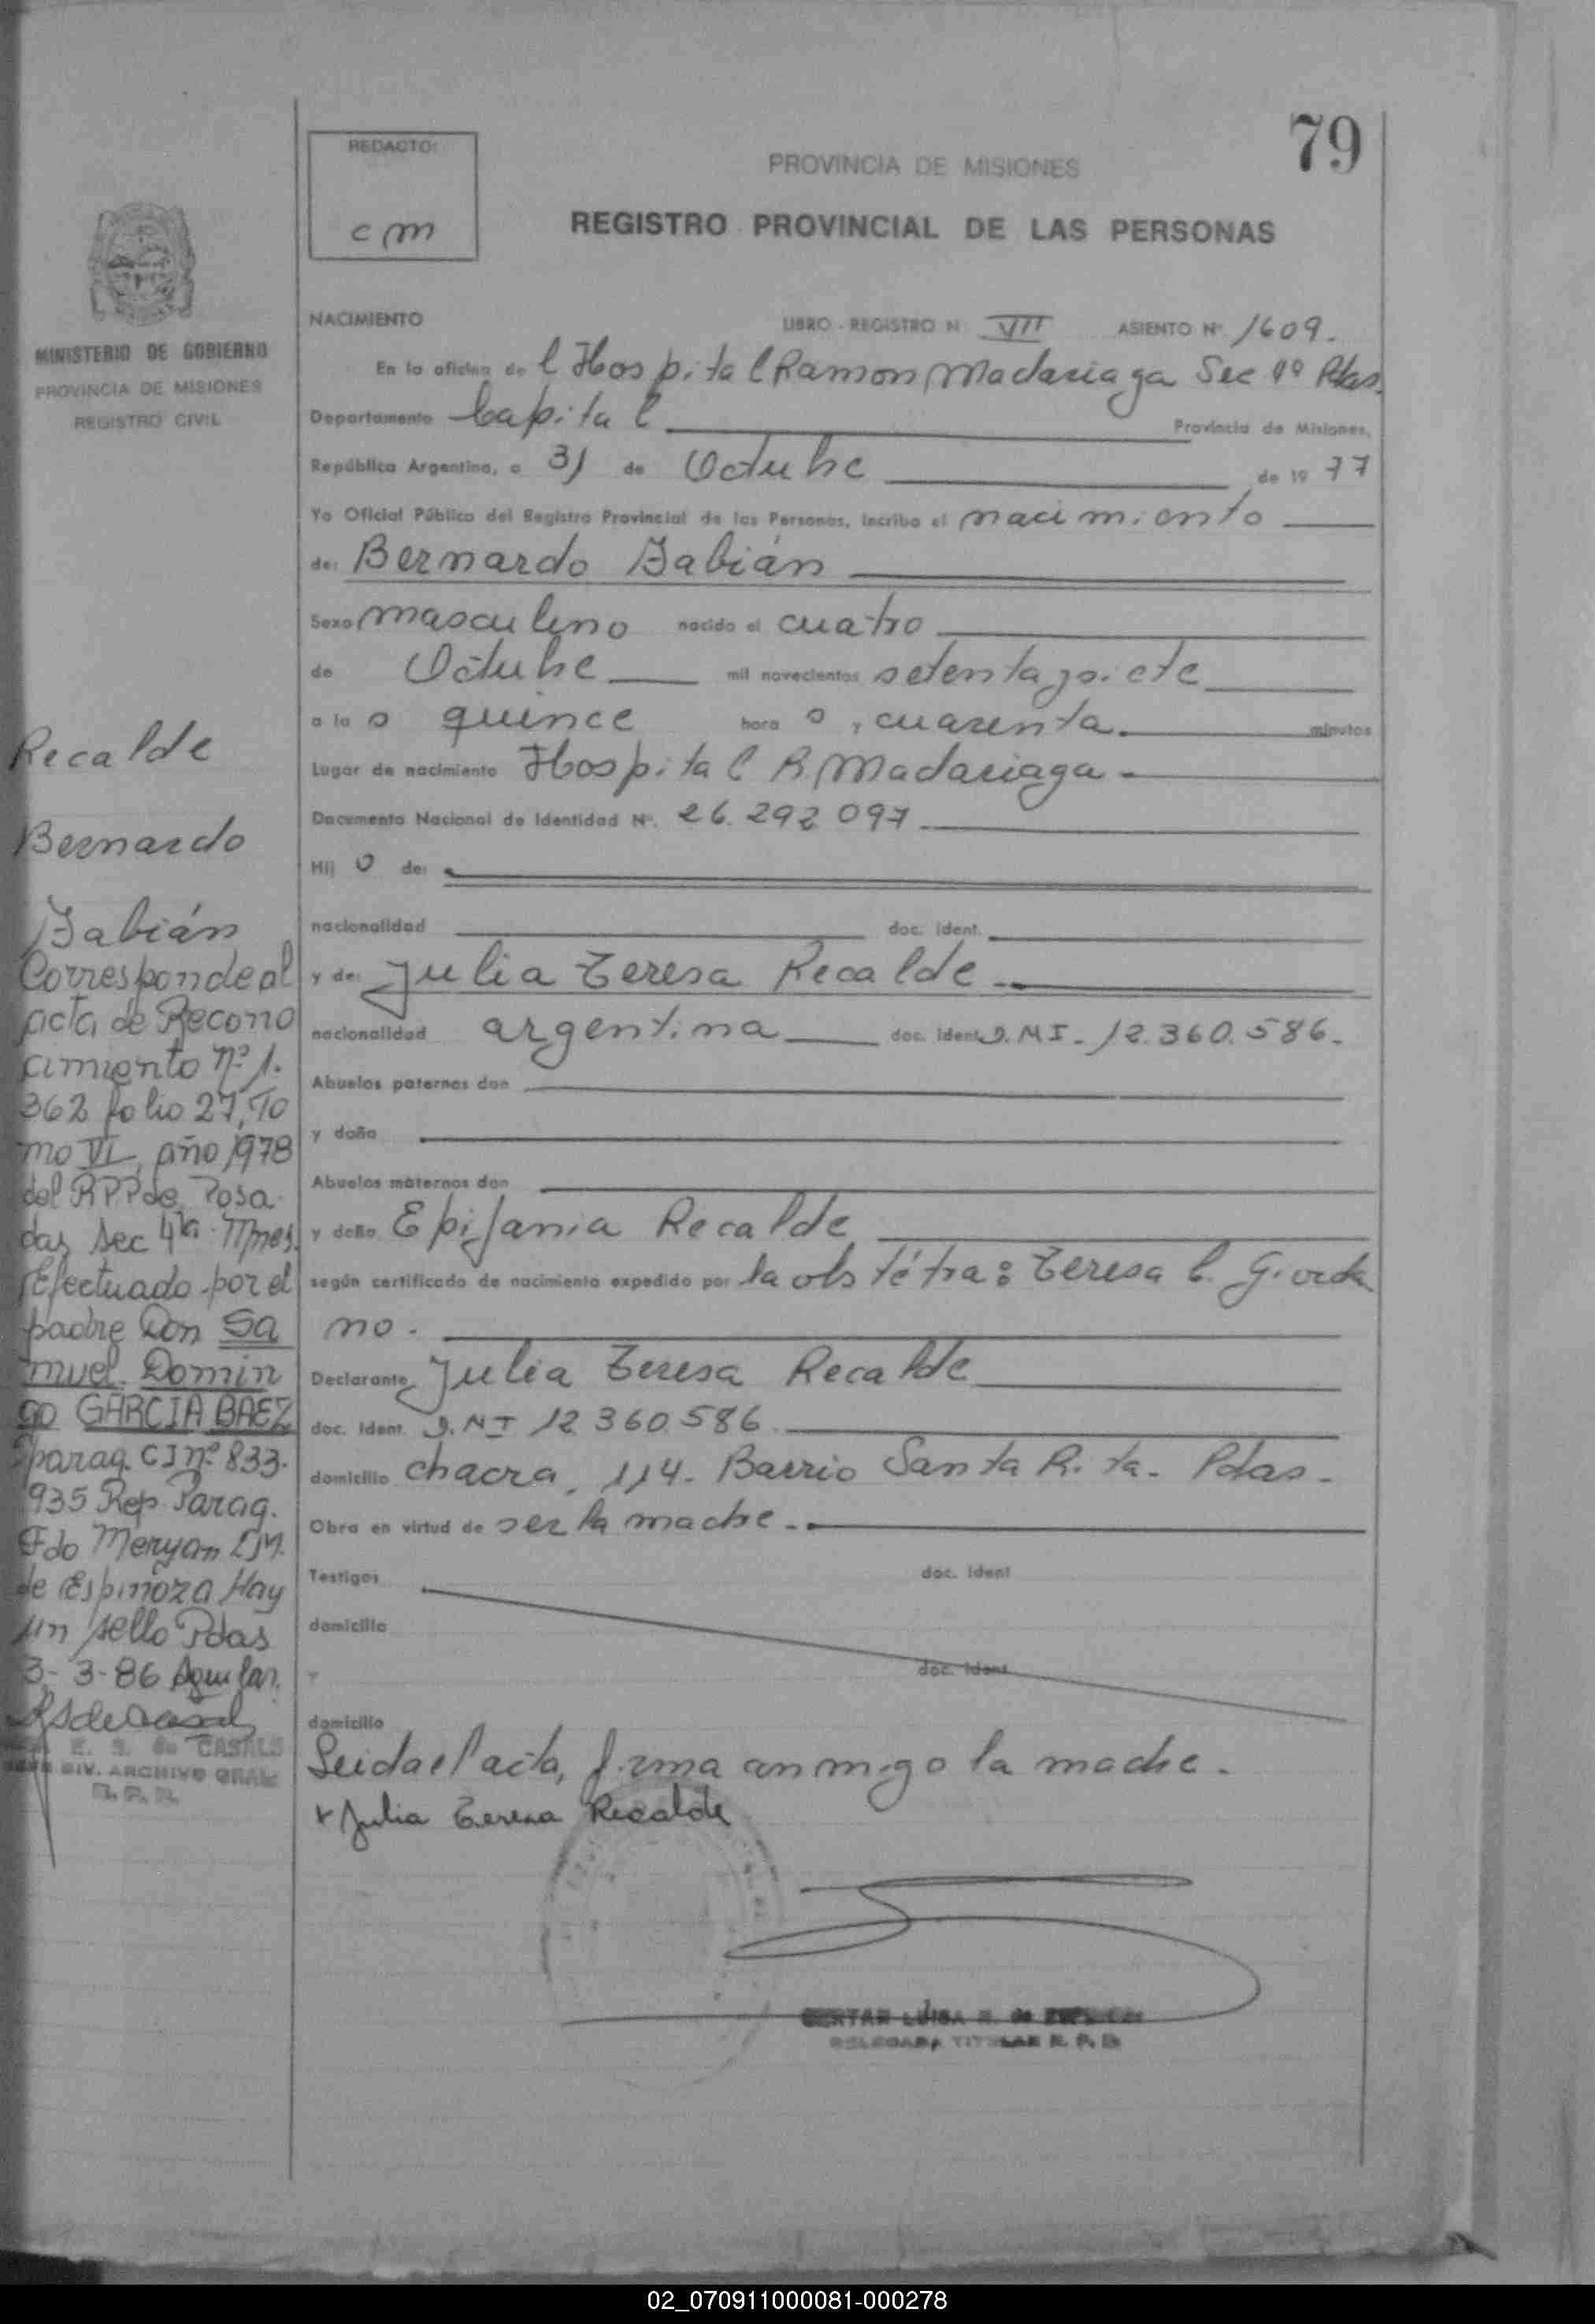 79
REDACTO:
cm
PROVINCIA DE MISIONES
REGISTRO PROVINCIAL DE LAS PERSONAS
MINISTERIO DE GOBIERNO
PROVINCIA DE MISIONES
REGISTRO CIVIL
Recalde
Bernardo
Fabián
Corresponde al
acta de Recono
cimiento Nº 1.
362 folio 27, To
mo VI, año 1978
del RPP de Posa
das Sec 4ta Mnes.
Efectuado por el
padre Don Sa
muel Domin
go GARCIA BAEZ
parag. CI nº 833.
935 Rep. Parag.
Fdo Meryan
de Espinoza Hay
un sello Pdas
3-3-86 Aguilar.
E. S. de CASALS
DIV. ARCHIVO GRAL
R. P. P.
NACIMIENTO LIBRO - REGISTRO N VII ASIENTO Nº 1609.
En la oficina de l Hospital Ramon Madariaga Sec 4º Pdas.
Departamento Capital Provincia de Misiones,
República Argentina, a 31 de Octubre de 19 77
Yo Oficial Público del Registro Provincial de las Personas, incribo el nacimiento
de: Bernardo Fabián
Sexo masculino nacido el cuatro
de Octubre mil novecientos setenta y siete
a la s quince hora s y cuarenta minutos
Lugar de nacimiento Hospital R. Madariaga -
Documento Nacional de Identidad Nº. 26.292.097
Hij o de:
nacionalidad doc. ident.
y de: Julia Teresa Recalde
nacionalidad argentina doc. ident D.N.I. 12.360.586.
Abuelos paternos don
y doña
Abuelos maternos don
y doña Epifania Recalde
según certificado de nacimiento expedido por la obstétra: Teresa C. Giorda
no.
Declarante Julia Teresa Recalde
doc. Ident. D.N.I 12.360.586
domicilio chacra, 114. Barrio Santa Rita. Pdas.
Obra en virtud de ser la madre.
Testigos doc. ident
domicilio
Y doc. ident
domicilio
Leida el acta, firma conmigo la madre.
x Julia Teresa Recalde
LUISA
DELEGADA TITULAR R. P. P.
02_070911000081-000278